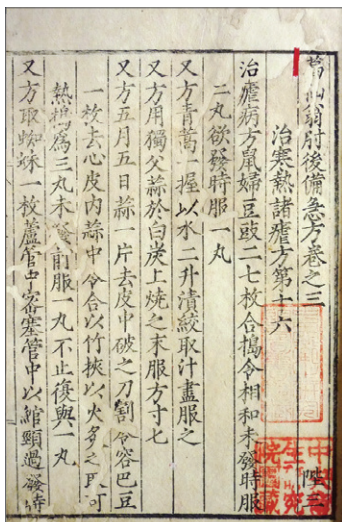 葛仙翁肘後備急方卷之三
陞三
治寒熱諸瘧方第十六
治瘧病方鼠婦豆豉二七枚合搗令相和未發時服
二丸欲發時服一丸
又方青蒿一握以水二升漬絞取汁盡服之
又方用獨父蒜於白炭上燒之末服方寸七
又方五月五日蒜一片去皮中破之刀割令容巴豆
一枚去心皮內蒜中令合以竹挾以火炙之取可
熱搗爲三丸未發前服一丸不止復與一丸
又方取蜘蛛一枚蘆管中密塞管中以綰頸過發時